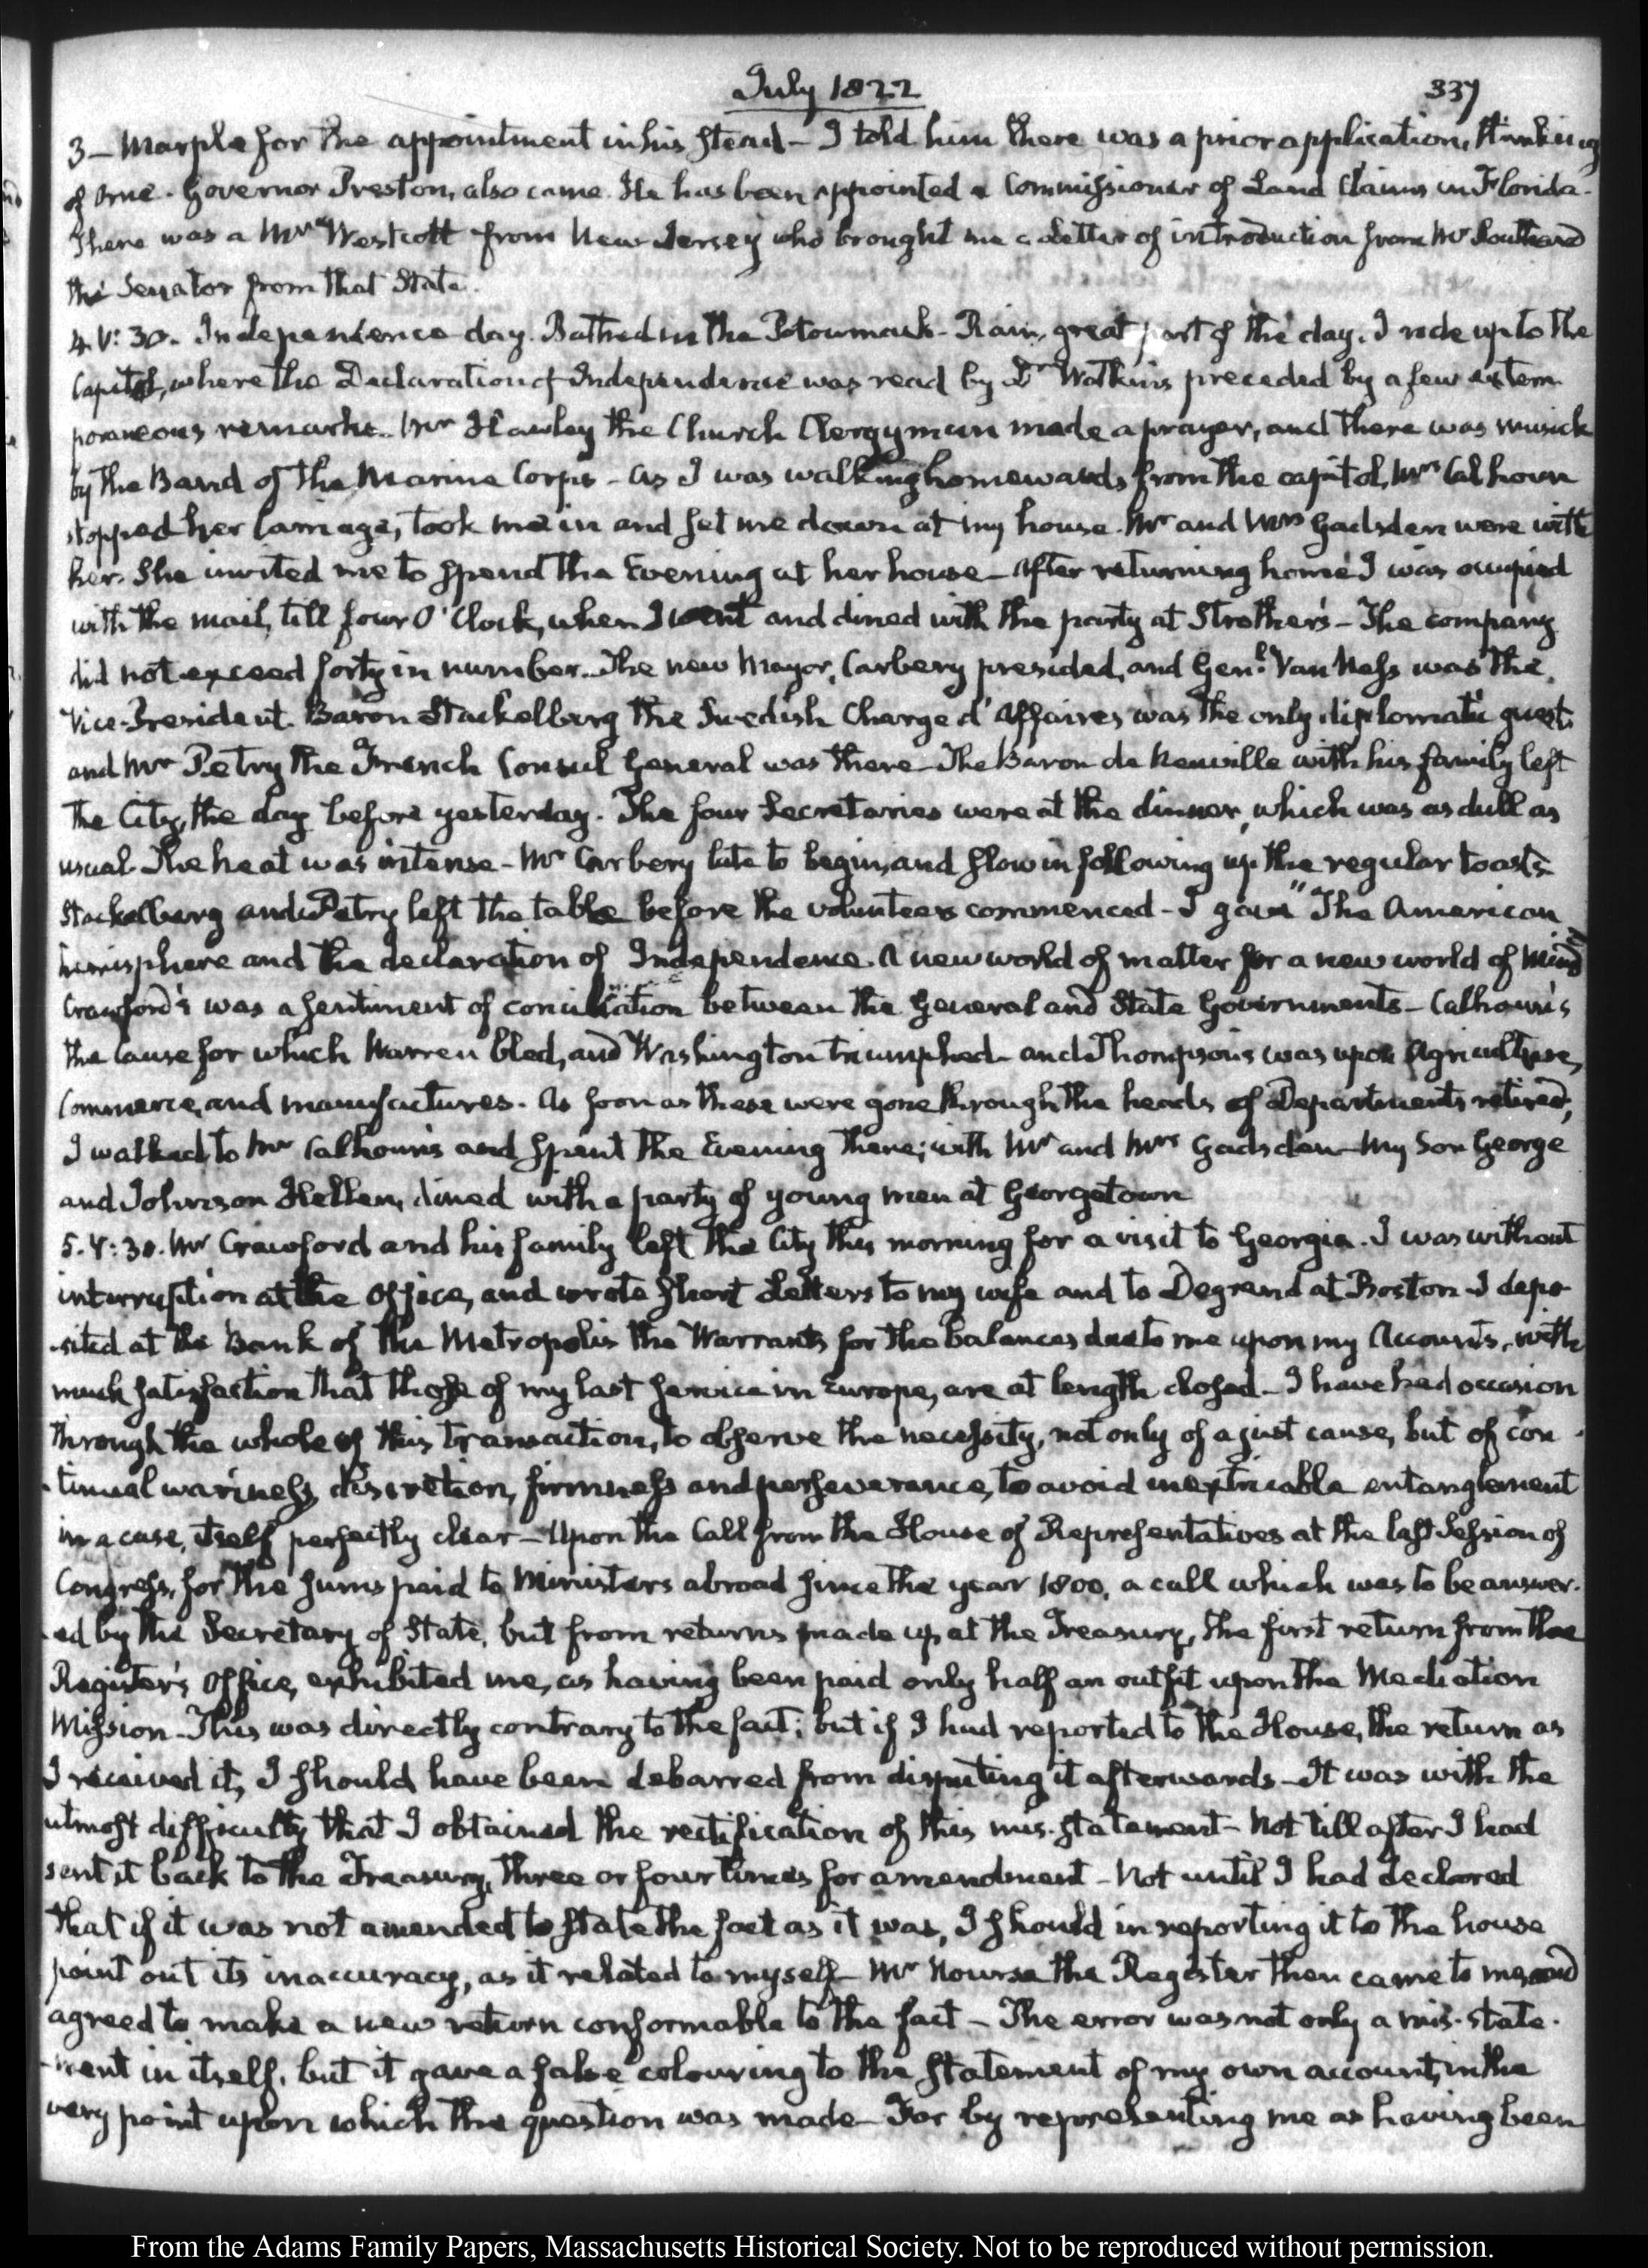 July 1822
337
3 — Marple for the appointment in his stead — I told him there was a prior application, thinking
of Orne. Governor Preston, also came. He has been appointed a Commissioner of Land Claims in Florida.
There was a Mr Westcott from New Jersey who brought me a Letter of introduction from Mr Southard
the Senator from that State.
4. V:30. Independence day. Bathed in the Potowmack — Rain, great part of the day. I rode up to the
Capitol, where the Declaration of Independence was read by Dr Watkins preceded by a few extem
poraneous remarks. Mr Hawley the Church Clergyman made a prayer, and there was musick
by the Band of the Marine Corps — As I was walking homewards from the capitol, Mrs Calhoun
stopped her Carriage, took me in and set me down at my house. Mr and Mrs Gadsden were with
her. She invited me to spend the Evening at her house — After returning home I was occupied
with the mail, till four O'Clock, when I went and dined with the party at Strother's — The company
did not exceed forty in number. The new Mayor, Carbery presided, and Genl. Van Ness was the
Vice-President. Baron Stackelberg the Swedish Charge d'Affaires was the only diplomatic guest.
and Mr Petry the French Consul General was there — The Baron de Neuville with his family left
the City, the day before yesterday. The four Secretaries were at the dinner, which was as dull as
usual. The heat was intense — Mr Carbery late to begin, and slow in following up the regular toasts.
Stackelberg and Petry left the table before the volunteers commenced — I gave "The American
hemisphere and the declaration of Independence. A new world of matter for a new world of Mind"
Crawford's was a sentiment of conciliation between the General and State Governments — Calhoun's
the Cause for which Warren bled, and Washington triumphed — and Thompson's was upon Agriculture,
Commerce, and manufactures. As soon as these were gone through the heads of Departments retired,
I walked to Mr Calhoun's and spent the Evening there; with Mr and Mrs Gadsden — My Son George
and Johnson Hellen, dined with a party of young men at Georgetown
5. V:30. Mr Crawford and his family left the City this morning for a visit to Georgia. I was without
interruption at the Office, and wrote short Letters to my wife and to Degrand at Boston — I depo
-sited at the Bank of the Metropolis the Warrants for the balances due to me upon my Accounts, with
much satisfaction that those of my last service in Europe, are at length closed — I have had occasion
through the whole of this transaction, to observe the necessity, not only of a just cause, but of con
-tinual wariness, discretion, firmness and perseverance, to avoid inextricable entanglement
in a case, itself perfectly clear — Upon the Call from the House of Representatives at the last Session of
Congress, for the sums paid to Ministers abroad since the year 1800, a call which was to be answer-
-ed by the Secretary of State, but from returns made up at the Treasury, the first return from the
Register's Office, exhibited me, as having been paid only half an outfit upon the Mediation
Mission — This was directly contrary to the fact; but if I had reported to the House, the return as
I received it, I should have been debarred from disputing it afterwards — It was with the
utmost difficulty that I obtained the rectification of this mis-statement — Not till after I had
sent it back to the Treasury, three or four times for amendment — Not until I had declared
that if it was not amended to state the fact as it was, I should in reporting it to the house
point out its inaccuracy, as it related to myself — Mr Nourse the Register then came to me, and
agreed to make a new return conformable to the fact — The error was not only a mis-state-
-ment in itself, but it gave a false colouring to the statement of my own account, in the
very point upon which the question was made — For by representing me as having been
From the Adams Family Papers, Massachusetts Historical Society. Not to be reproduced without permission.